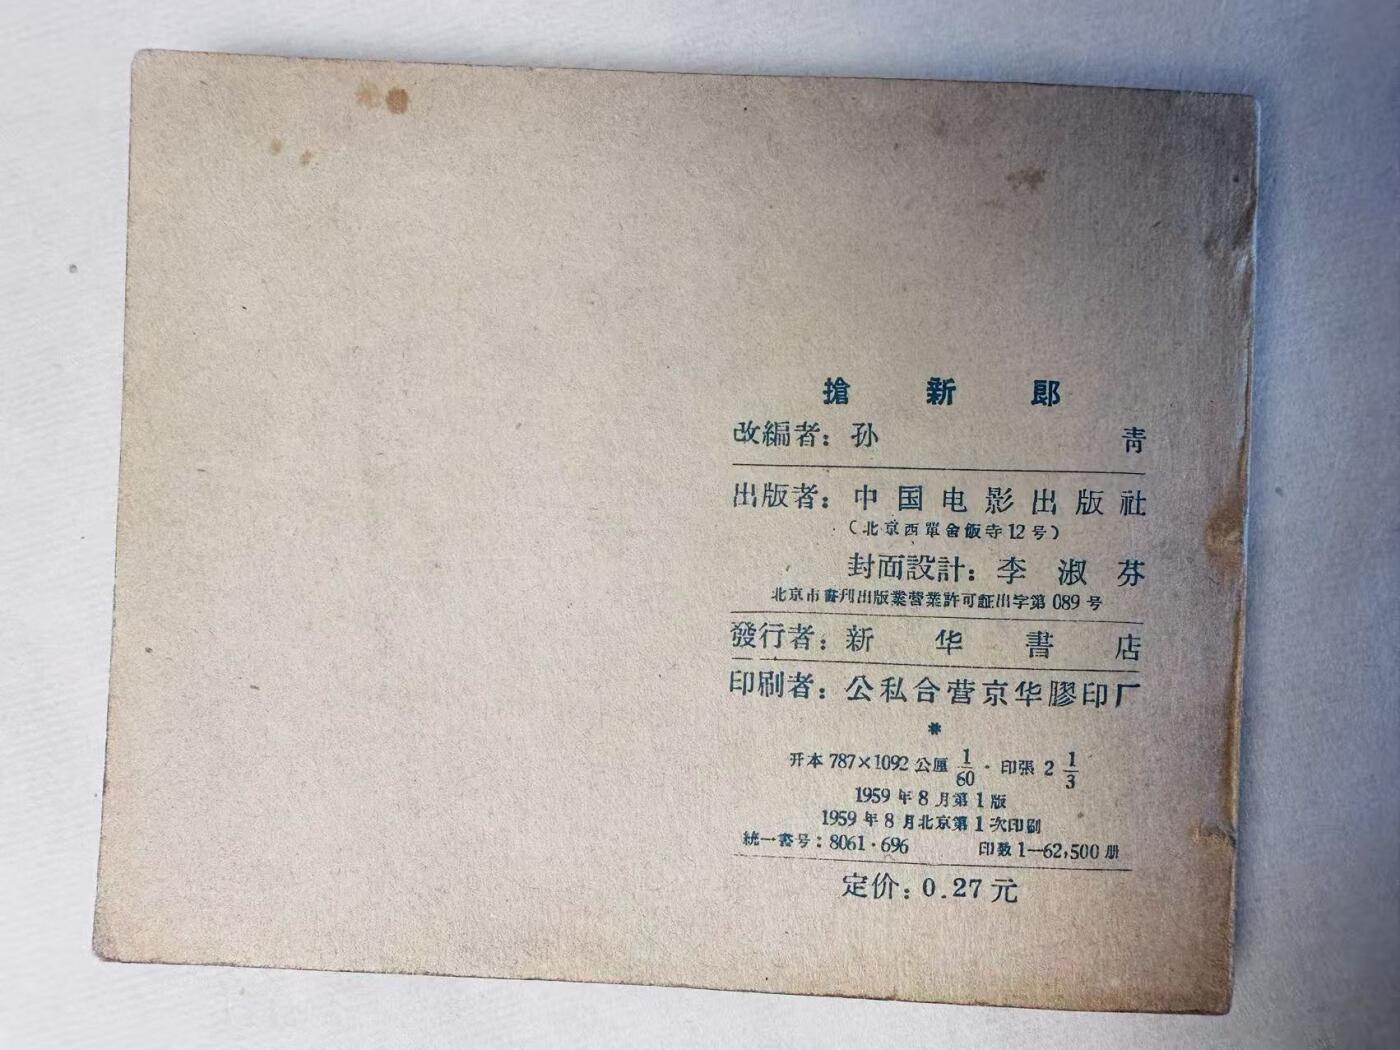 搶新郎
改編者：孙青
出版者：中国电影出版社
（北京西單舍飯寺12号）
封面設計：李淑芬
北京市書刊出版業营業許可証出字第089号
發行者：新华書店
印刷者：公私合营京华膠印厂
*
开本 787×1092 公厘 1/60 · 印張 2 1/3
1959年8月第1版
1959年8月北京第1次印刷
統一書号：8061·696 印数1—62,500册
定价：0.27元